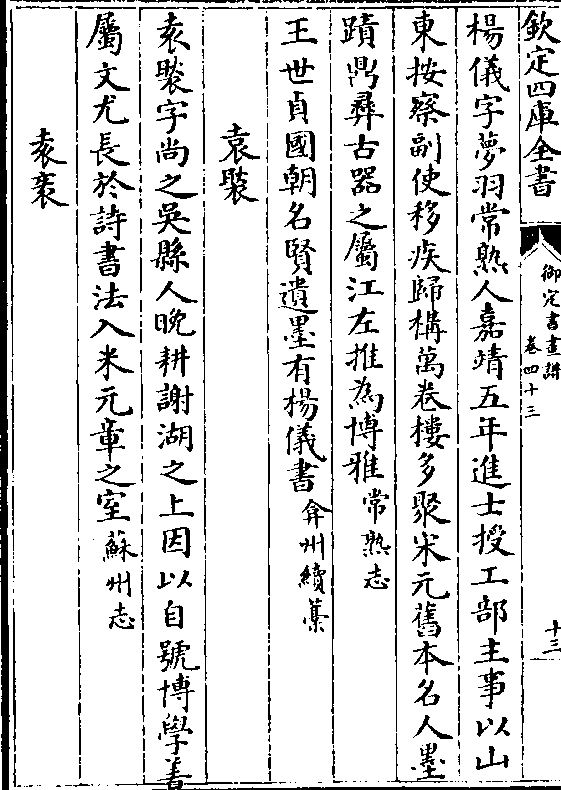 欽定四庫全書
御定書畫譜
卷四十三
十三
楊儀字夢羽常熟人嘉靖五年進士授工部主事以山
東按察副使移疾歸構萬卷樓多聚宋元舊本名人墨
蹟鼎彞古器之屬江左推為博雅常熟志
王世貞國朝名賢遺墨有楊儀書弇州續藁
袁褧
袁褧字尚之吳縣人晚耕謝湖之上因以自號博學善
屬文尤長於詩書法入米元章之室蘇州志
袁袠